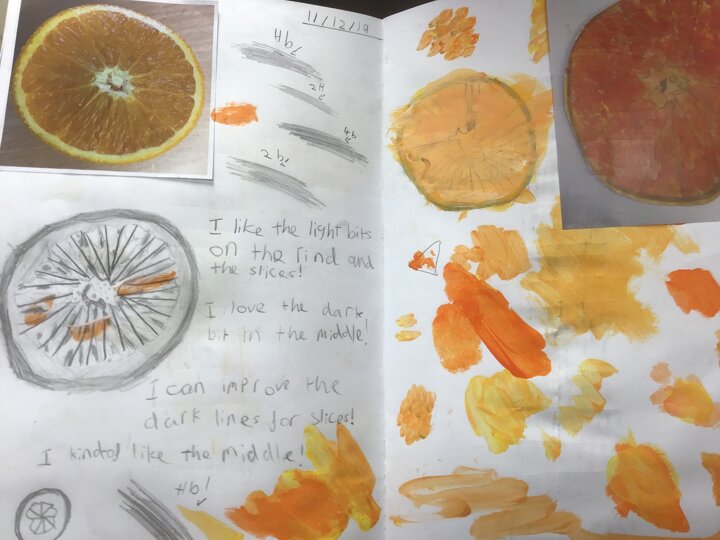 11/12/19
4b
2H
4b
2b
I like the light bits
on the rind and
the slices!
I love the dark
bit in the middle!
I can improve the
dark lines for slices!
I kindof like the middle!
4b!